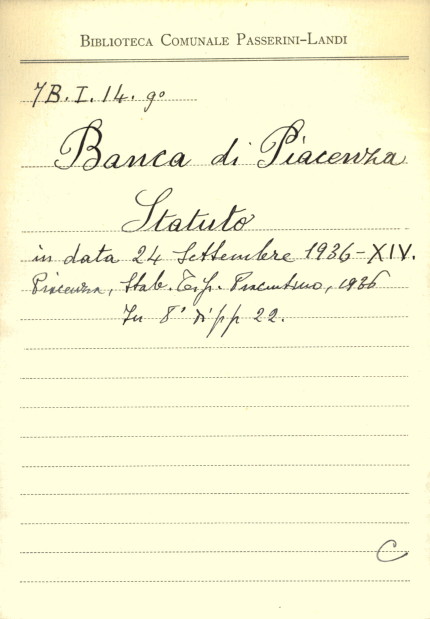 BIBLIOTECA COMUNALE PASSERINI-LANDI
7B. I. 14. 9º
Banca di Piacenza
Statuto
in data 24 Settembre 1936-XIV.
Piacenza, Stab. Tip. Piacentino, 1936
In 8° di pp 22.
C